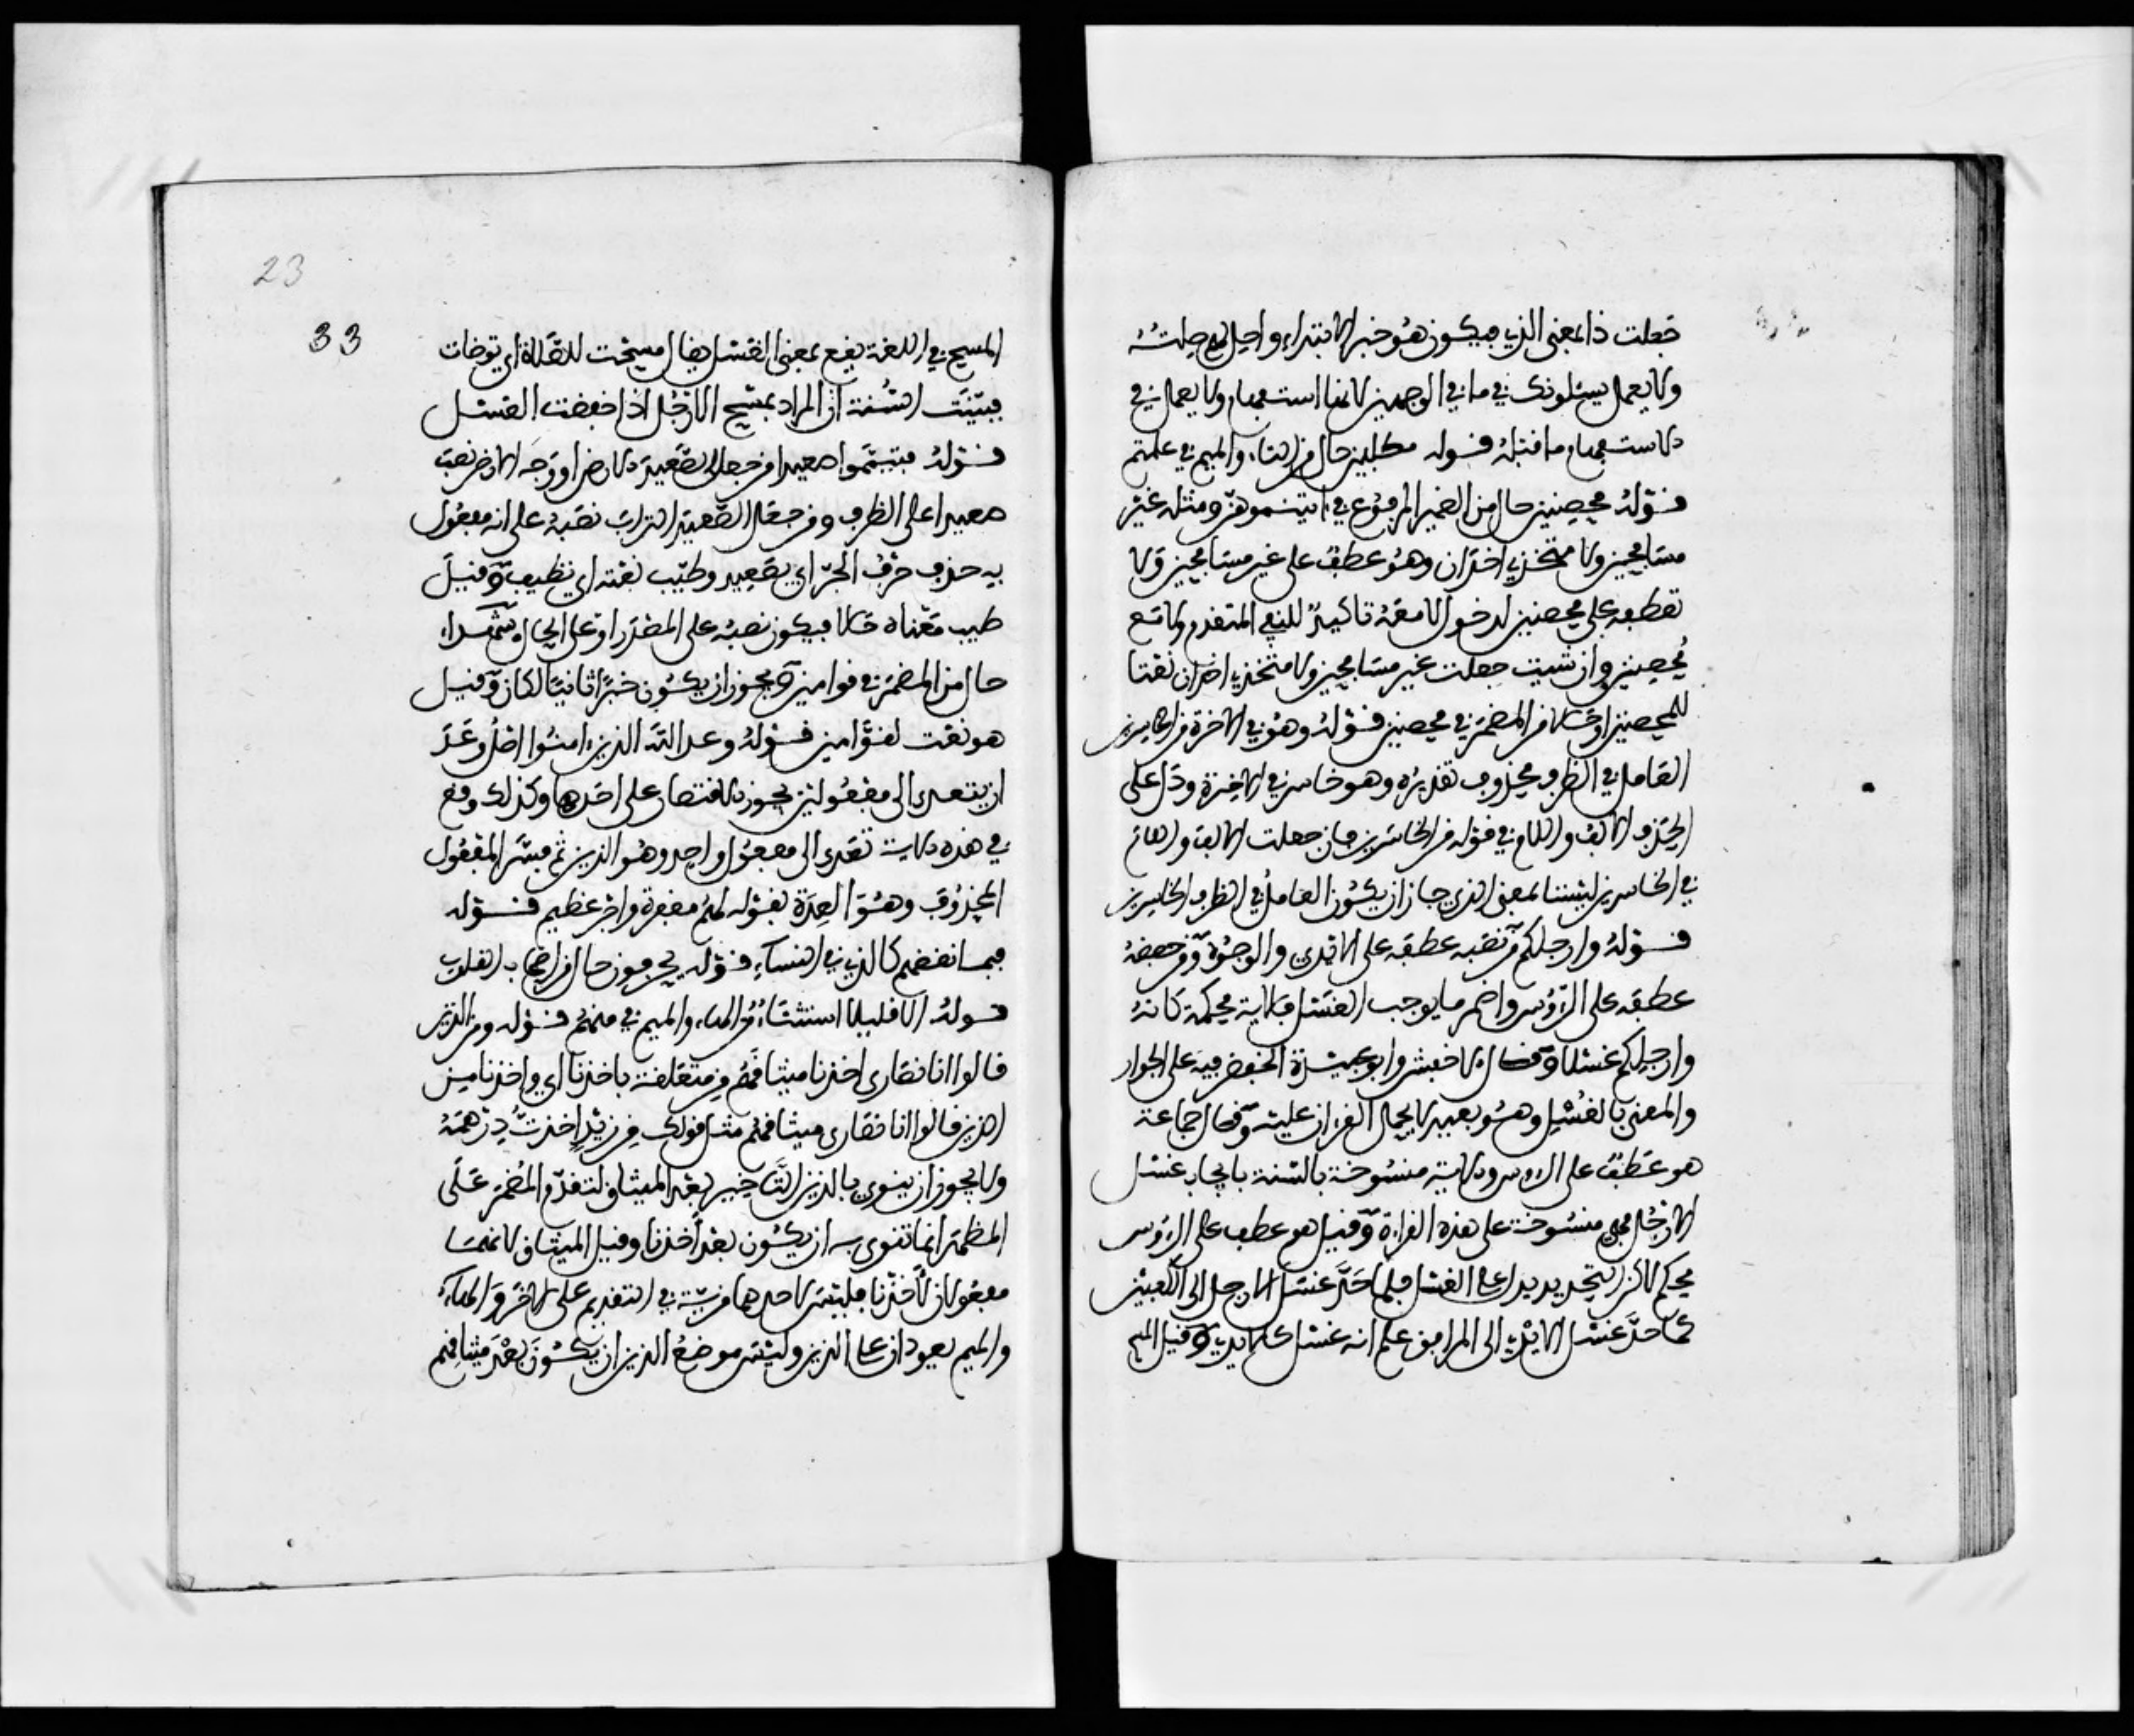 جعلت ذا بمعنى الذي فيكون هو خبر الابتداء واحل لهم صلته
ولا يعمل يسئلونك في ما في الوجهين لانها استفهام ولا يعمل في
الاستفهام ما قبله قوله مكلبين حال من التاء والميم في علمتم
قوله محصنين حال من الضمير المرفوع في اتيتموهن ومثله غير
مسافحين ولا متخذي اخدان وهو عطف على غير مسافحين ولا
تعطفه على محصنين لدخول لا معه تاكيدا للنفي المتقدم ولا مع
محصنين وان شيت جعلت غير مسافحين ولا متخذي اخدان نعتا
للمحصنين او حالا من المضمر في محصنين قوله وهو في الاخرة من الخاسرين
العامل في الظرف محذوف تقديره وهو خاسر في الاخرة ودل على
الحذف الالف واللام في قوله من الخاسرين فان جعلت الالف واللام
في الخاسرين ليستا بمعنى الذي جاز ان يكون العامل في الظرف الخاسرين
قوله وارجلكم من نصبه عطفه على الايدي والوجوه ومن خفضه
عطفه على الرؤس واضمر ما يوجب الغسل فالاية محكمة كانه
وارجلكم غسلا وقال الاخفش وابو عبيدة الخفض فيه على الجوار
والمعنى بالغسل وهو بعيد لا يحمل القران عليه وقال جماعة
هو عطف على الرؤس والاية منسوخة بالسنة بايجاب غسل
الارجل فهي منسوخة على هذه القراءة وقيل هو عطف على الرؤس
محكم لاكن التحديد يدل على الغسل فلما حد غسل الارجل الى الكعبين
كما حد غسل الايدي الى المرافق علم انه غسل كالايدي وقيل المسح
23
33
المسح في اللغة يقع بمعنى الغسل يقال مسحت للصلاة اي توضات
فبينت السنة ان المراد بمسح الارجل اذا خفضت الغسل
قوله فتيمموا صعيدا من جعل الصعيد الارض او وجه الارض نصب
صعيدا على الظرف ومن جعل الصعيد التراب نصبه على انه مفعول
به حذف حرف الجر اي بصعيد وطيب نعته اي نظيف وقيل
طيب معناه حلالا فيكون نصبه على المصدر او على الحال شهداء
حال من المضمر في قوامين ويجوز ان يكون خبرا ثانيا لكان وقيل
هو نعت لقوامين قوله وعد الله الذين امنوا اصل وعد
ان يتعدى الى مفعولين يجوز الاقتصار على احدهما وكذلك وقع
في هذه الاية تعدى الى مفعول واحد وهو الذين ثم فسر المفعول
المحذوف وهو العدة بقوله لهم مغفرة واجر عظيم قوله
فبما نقضهم كالذي في النساء قوله يحرفون حال من اصحاب القلوب
قوله الا قليلا استثناء من الهاء والميم في منهم قوله ومن الذين
قالوا انا نصارى اخذنا ميثاقهم من متعلقة باخذنا اي واخذنا من
الذين قالوا انا نصارى ميثاقهم مثل قولك من زيد اخذت درهمه
ولا يجوز ان ينوى بالذين التاخير بعد الميثاق لتقدم المضمر على
المظهر انما تنوي به ان يكون بعد اخذنا وقبل الميثاق لانهما
مفعولان لاخذنا فليس لاحدهما مزية في التقديم على الاخر والهاء
والميم يعودان على الذين وليس موضع الذين ان يكون بعد ميثاقهم